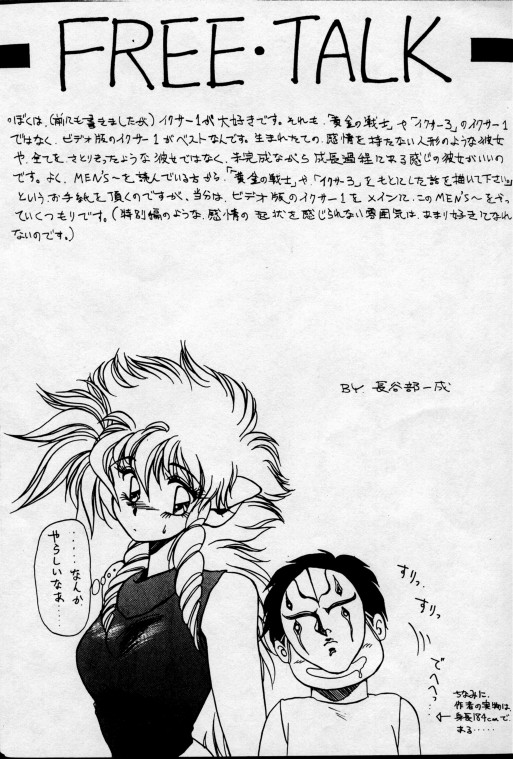 FREE・TALK
◦ぼくは、(前にも書きましたが) イクサー1が大好きです。それも、「黄金の戦士」や「イクサー3」のイクサー1
ではなく、ビデオ版のイクサー1がベストなんです。生まれたての、感情を持たない人形のような彼女
や、全てをさとりきったような彼女ではなく、未完成ながら成長過程にある感じの彼女がいいの
です。よく、MEN'S〜を読んでいる方から、「「黄金の戦士」や、「イクサー3」をもとにした話を描いて下さい」
というお手紙を頂くのですが、当分は、ビデオ版のイクサー1をメインに、このMEN'S〜をやっ
ていくつもりです。(特別編のような、感情の起伏を感じられない雰囲気は、あまり好きになれ
ないのです。)
BY 長谷部一成
・・・・・なんか
やらしいなあ・・・・
すりっ、
すりっ
でへへっ・・
ちなみに、
作者の実物は、
身長184cmで
ある・・・・・